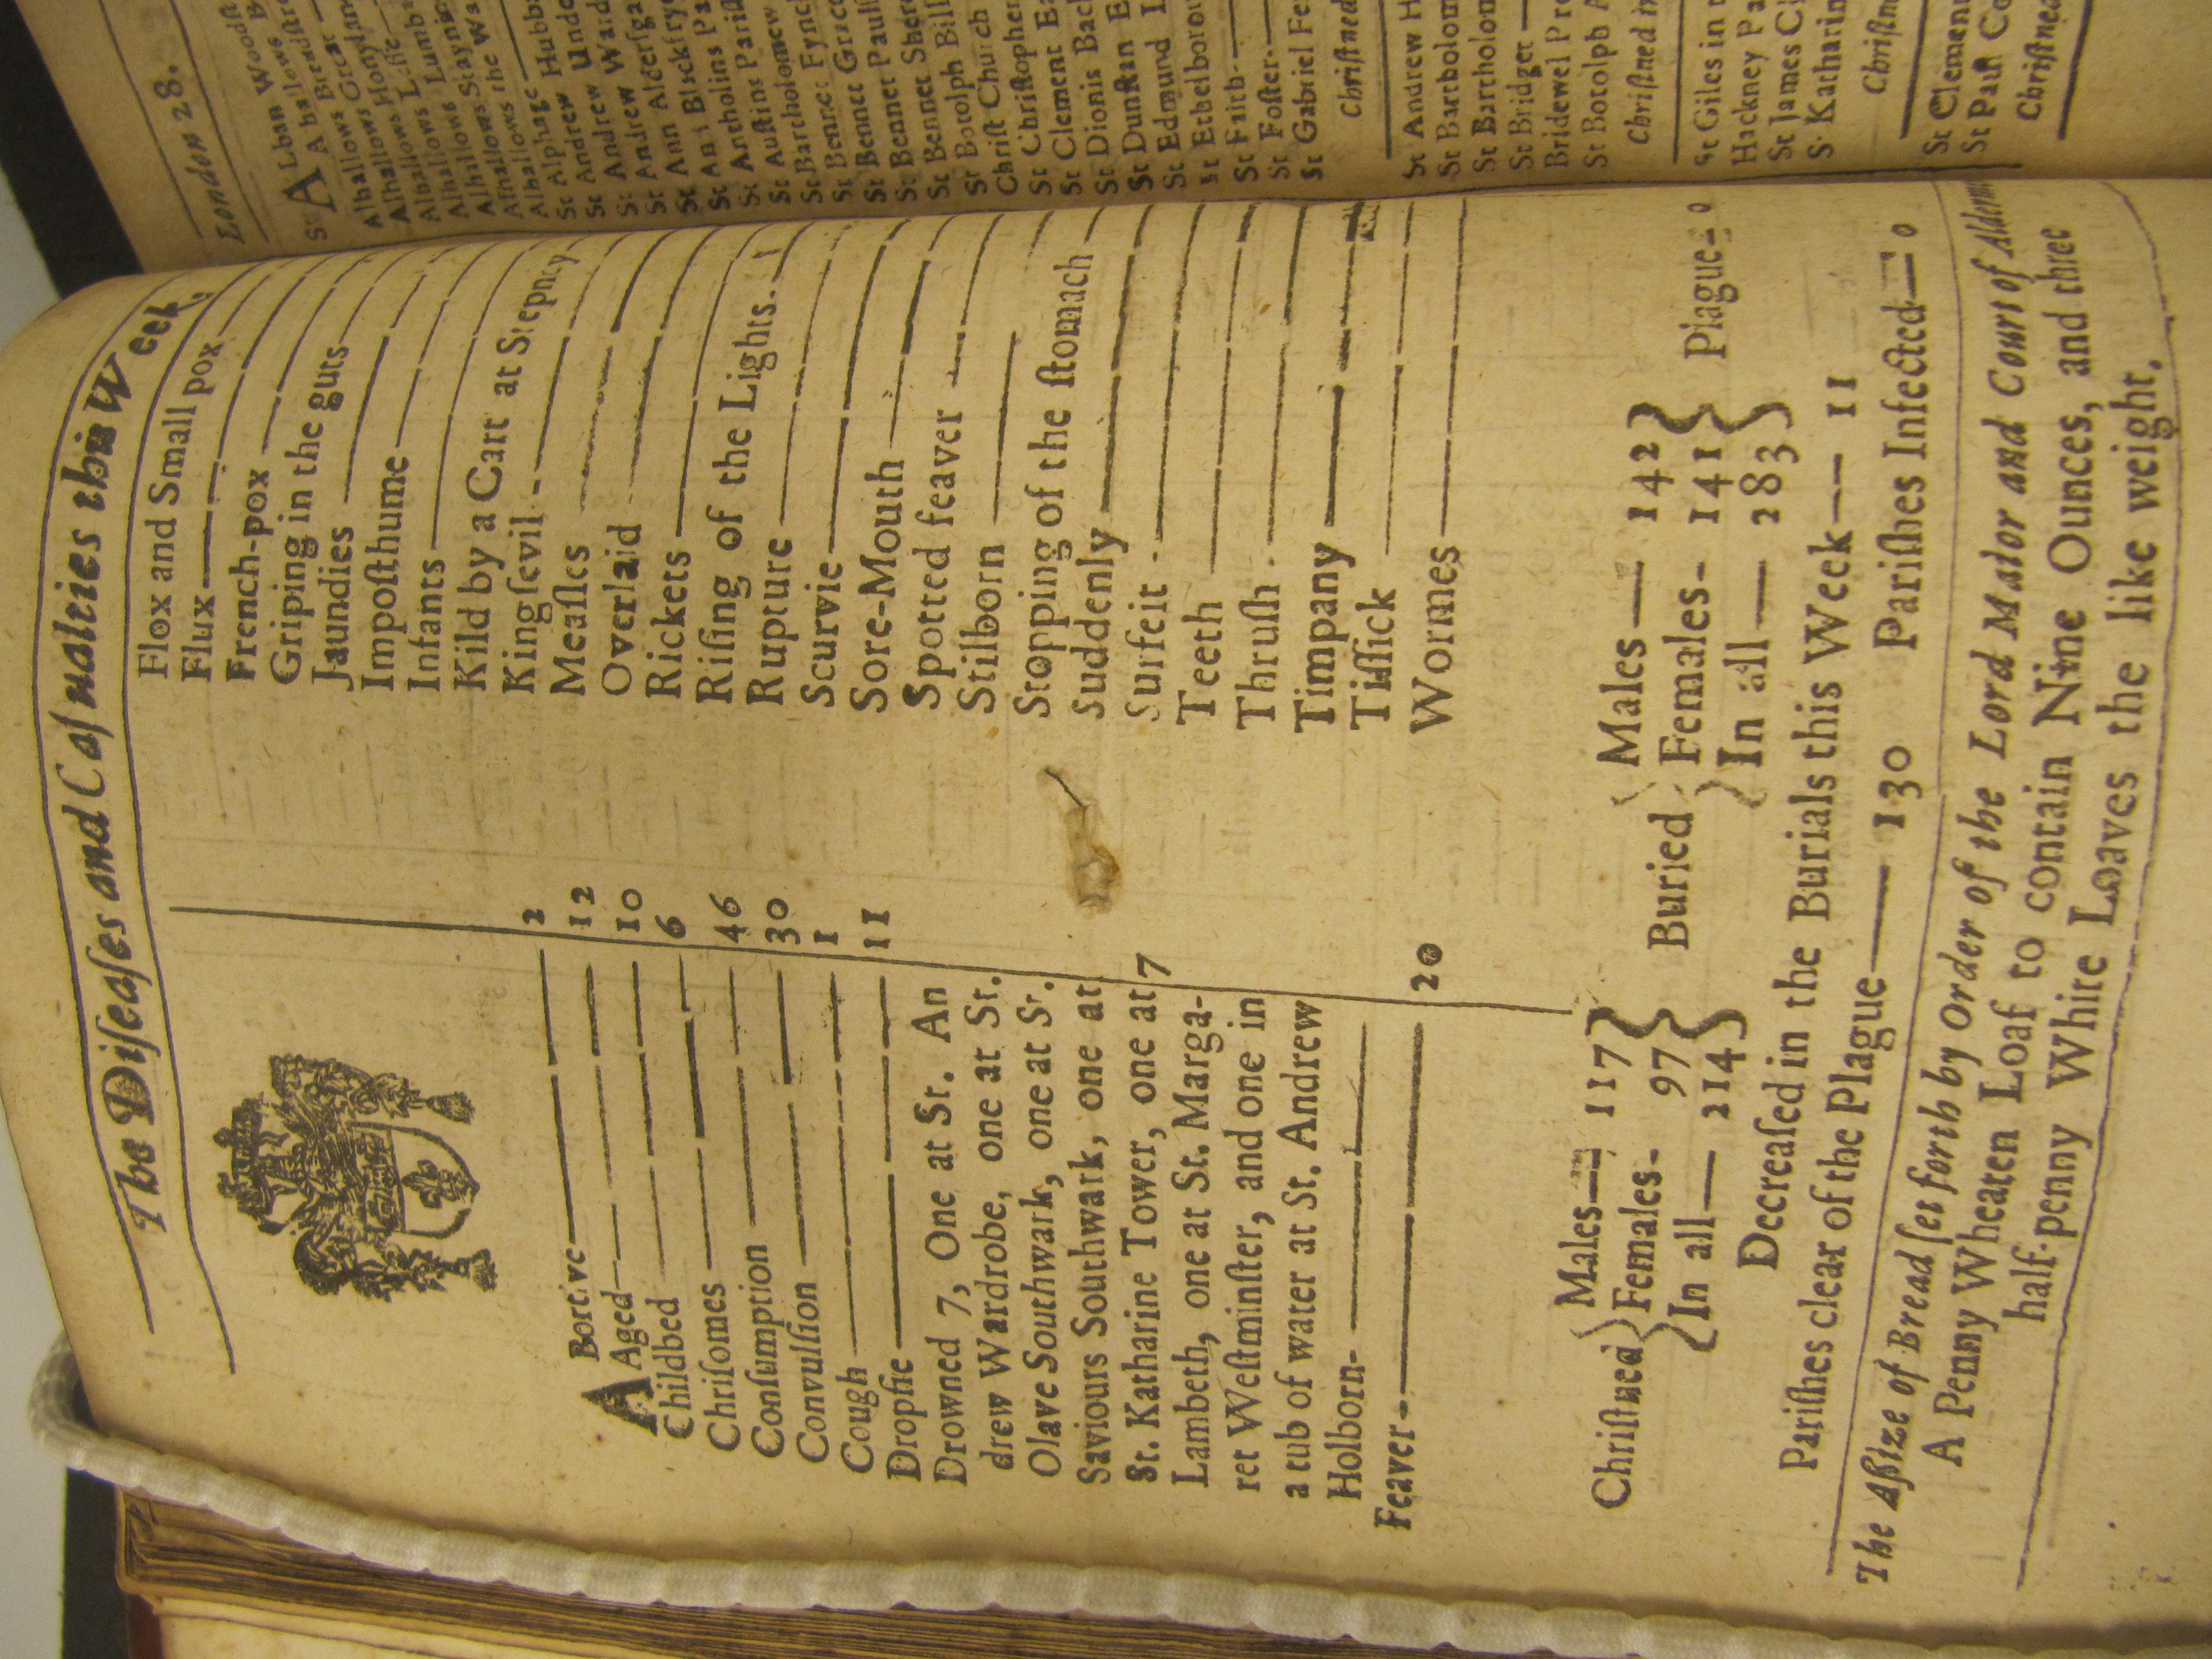 The Diſeaſes and Caſualties this Week.
ABortive 2
Aged 12
Childbed 10
Chriſomes 6
Conſumption 46
Convulſion 30
Cough 1
Dropſie 11
Drowned 7, One at St. An
drew Wardrobe, one at St.
Olave Southwark, one at St.
Saviours Southwark, one at
St. Katharine Tower, one at 7
Lambeth, one at St. Marga-
ret Weſtminſter, and one in
a tub of water at St. Andrew
Holborn-
Feaver 20
Flox and Small pox
Flux
French-pox
Griping in the guts
Jaundies
Impoſthume
Infants
Kild by a Cart at Stepney
Kingſevil
Meaſles
Overlaid
Rickets
Riſing of the Lights.
Rupture
Scurvie
Sore-Mouth
Spotted feaver
Stilborn
Stopping of the ſtomach
Suddenly
Surfeit
Teeth
Thruſh
Timpany
Tiſſick
Wormes
Chriſtned { Males 117 Females- 97 In all 214 }
Buried { Males 142 Females- 141 In all 283 } Plague 0
Decreaſed in the Burials this Week 11
Pariſhes clear of the Plague 130 Pariſhes Infected 0
The Aſſize of Bread ſet forth by Order of the Lord Maior and Court of
A Penny Wheaten Loaf to contain Nine Ounces, and three
half-penny White Loaves the like weight.
London 28.
St ALban Woodſt
Alhallows Great
Alhallows Hony
Alhallows Leſſe
Alhallows Lumb
Alhallows Staynin
Alhallows the Wa
Alphage Hubb
St Andrew Unde
St Andrew Ward
St Ann Alderſga
St Ann Blackfry
St Antholins Pa
St Auſtins Pariſ
St Bartholomew
St Bennet Fynch
St Bennet Grace
St Bennet Paul
St Bennet Shere
St Botolph Bill
Chriſt Church
St Chriſtopher
St Clement Ea
St Dionis Bac
St Dunſtan E
St Edmund L
St Ethelborou
St Faith
St Foſter
St Gabriel Fe
Chriſtned
St Andrew H
St Bartholom
St Bartholom
St Bridget
Bridewel Pre
St Botolph A
Chriſtned in
St Giles in t
Hackney Pa
St James Cl
St Katharin
Chriſtn
St Clement
St Paul Co
Chriſtned